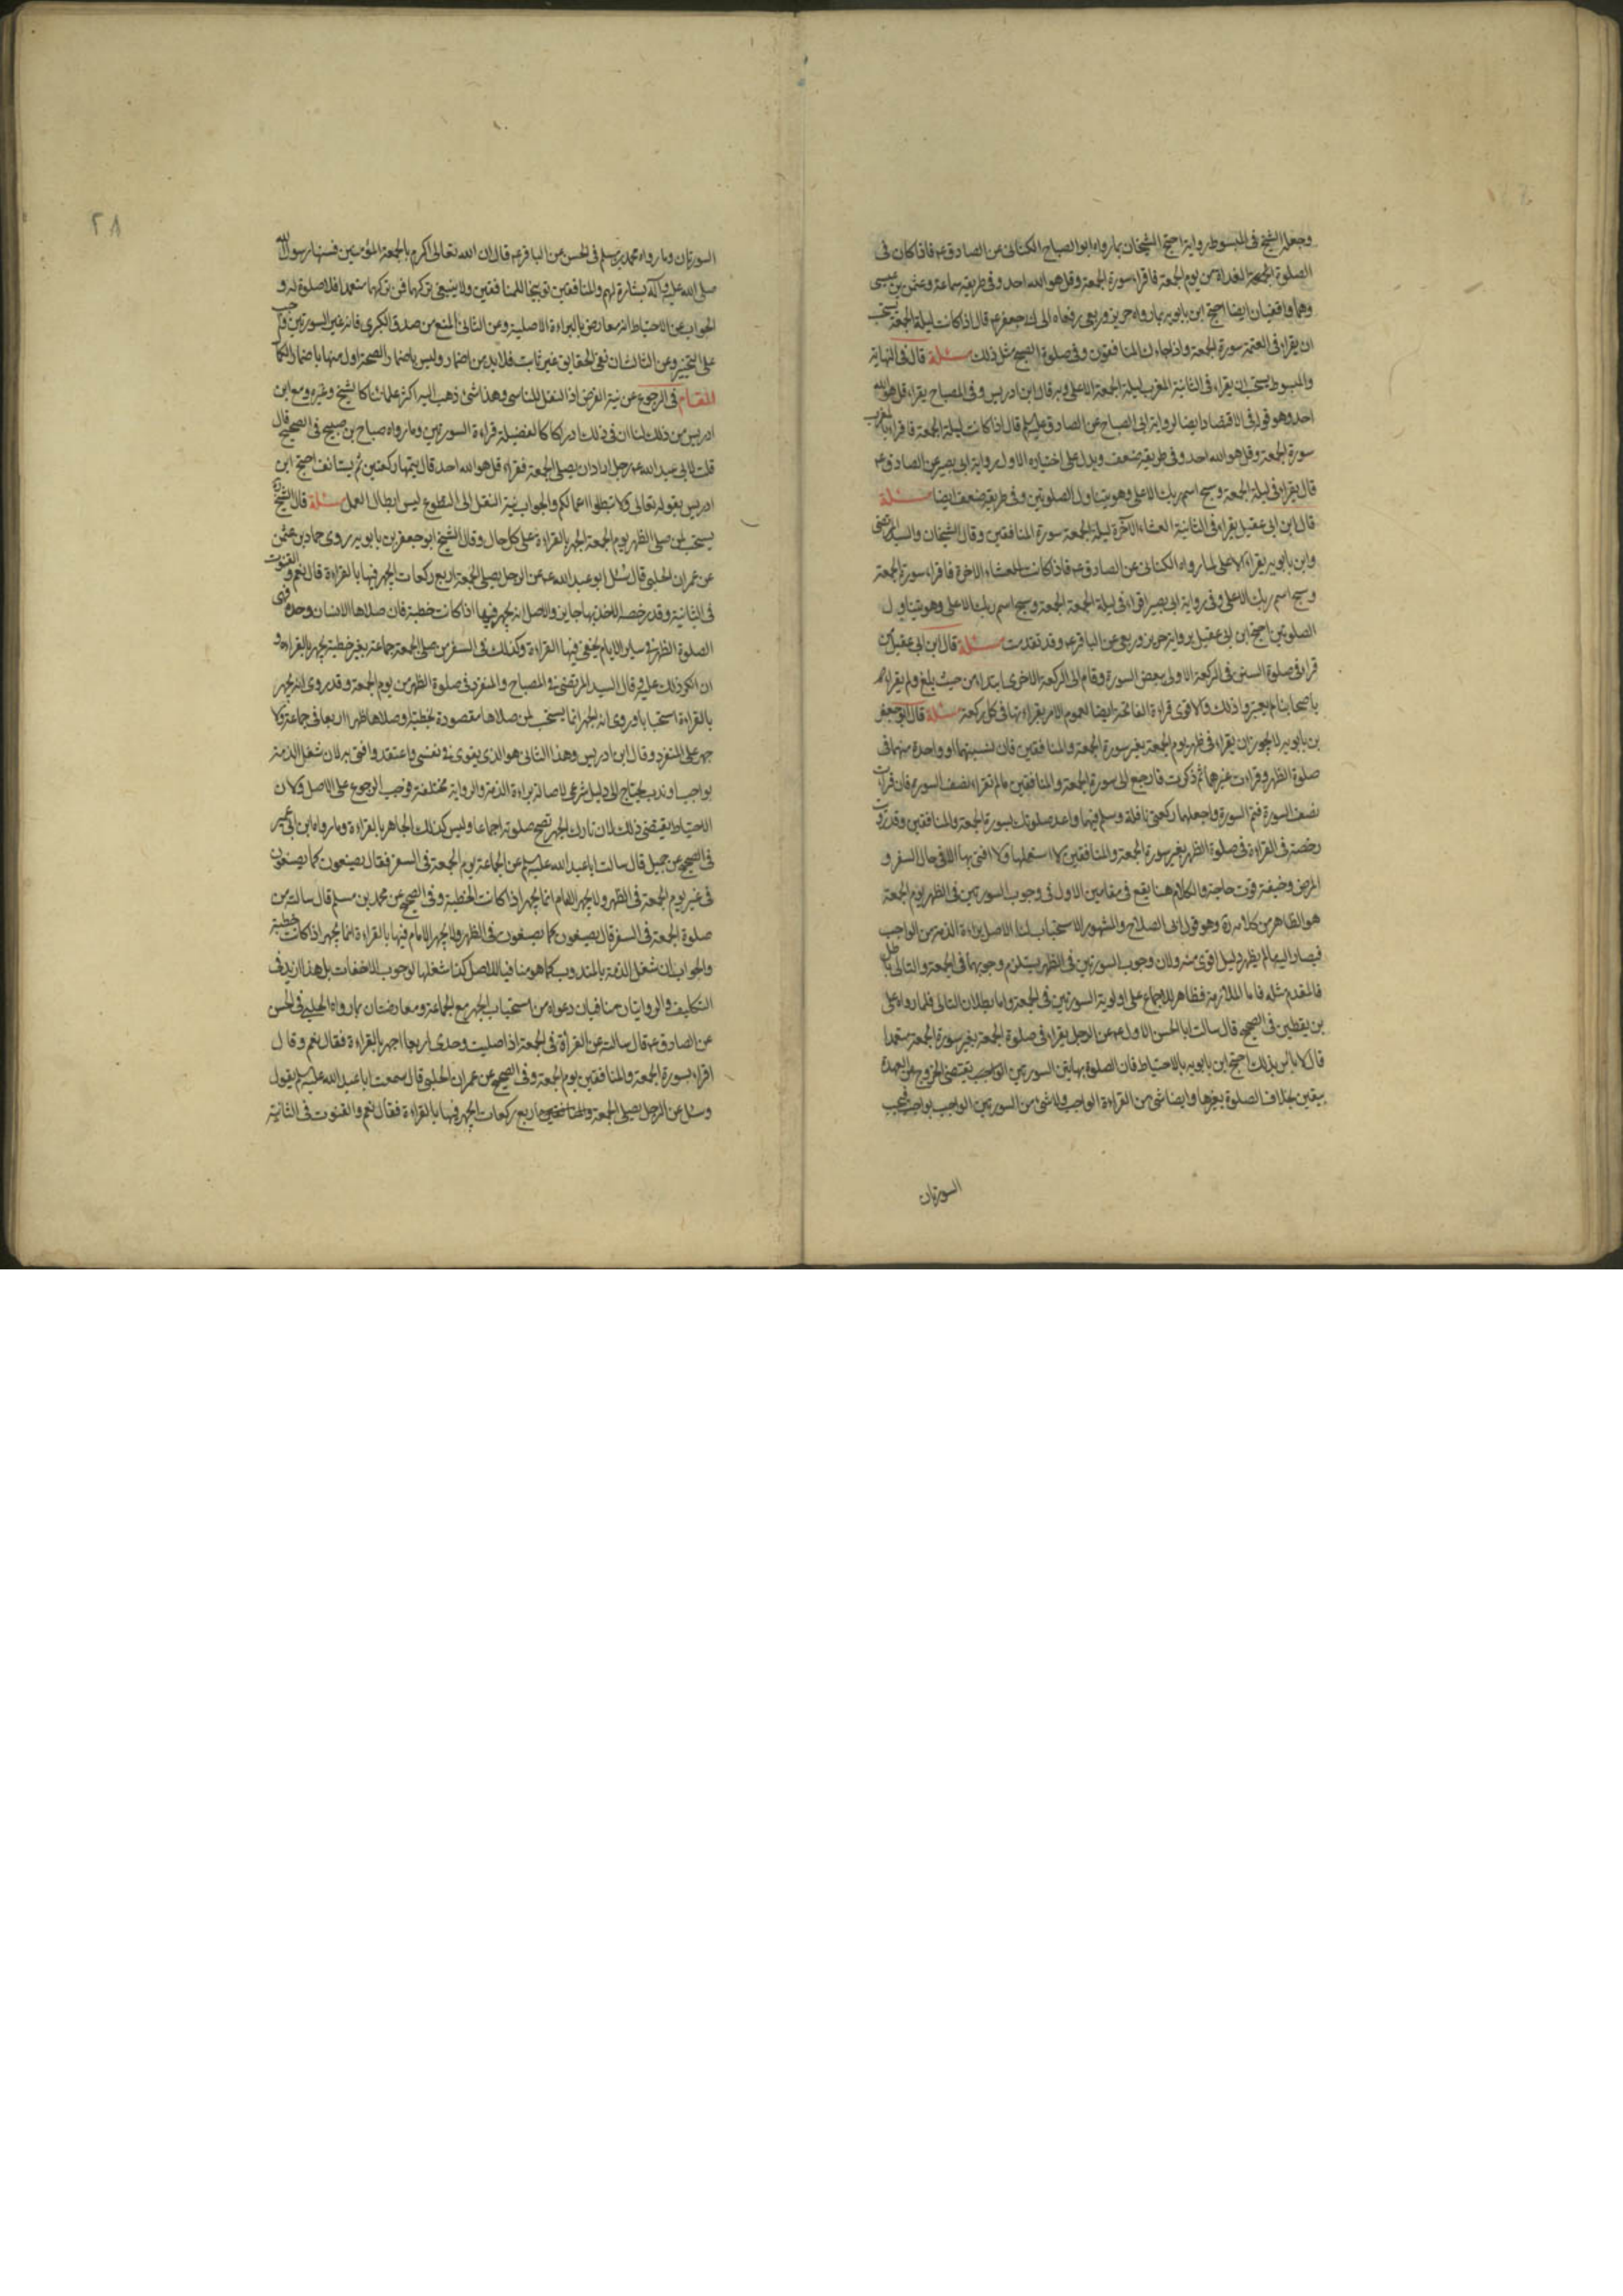 وجعله الشيخ فى المبسوط رواية احتج الشيخان بما رواه ابو الصباح الكنانى عن الصادق ع فاذا كان فى
الصلوة الغداة من يوم الجمعة فاقراء سورة الجمعة وقل هو الله احد وفى طريقه سماعة وعثمن بن عيسى
وهما واقفيان ايضا احتج ابن بابويه بما رواه حريز وربعى رفعاه الى ابى جعفر ع قال اذا كانت ليلة الجمعة يستحب
ان يقراء فى العتمة سورة الجمعة واذا جاءك المنافقون وفى صلوة الصبح مثل ذلك مسئلة قال فى النهاية
والمبسوط يستحب ان يقراء فى الثانية المغرب ليلة الجمعة الاعلى وبه قال ابن ادريس وفى المصباح يقراء قل هو الله
احد وهو قوله فى الاقتصاد ايضا لرواية ابى الصباح عن الصادق عليه السلم قال اذا كانت ليلة الجمعة فاقراء بالمغرب
سورة الجمعة وقل هو الله احد وفى طريقه ضعف ويدل على اختياره الاول رواية ابى بصير عن الصادق ع
قال يقراء فى ليلة الجمعة وسبح اسم ربك الاعلى وهو يتناول الصلوتين وفى طريقه ضعف ايضا مسئلة
قال ابن ابى عقيل يقراء فى الثانية العشاء الآخرة ليلة الجمعة سورة المنافقين وقال الشيخان والسيد المرتضى
وابن بابويه يقراء الاعلى لما رواه الكنانى عن الصادق ع فاذا كانت العشاء الاخرة فاقراء سورة الجمعة
وسبح اسم ربك الاعلى وفى رواية ابى بصير اقراء فى ليلة الجمعة الجمعة وسبح اسم ربك الاعلى وهو يتناول
الصلوتين احتج ابن ابى عقيل برواية حريز وربعى عن الباقر ع وقد تقدمت مسئلة قال ابن ابى عقيل من
قراء فى صلوة السنن فى الركعة الاولى ببعض السورة وقام الى الركعة الاخرى ابتداء من حيث بلغ ولم يقراء
قال ابو جعفر
بن بابويه لا يجوز ان يقراء فى ظهر يوم الجمعة بغير سورة الجمعة والمنافقين فان نسيتهما او واحدة منهما فى
صلوة الظهر وقراءت غيرهما ثم ذكرت فارجع الى سورة الجمعة والمنافقين مالم تقراء نصف السورة فان قراءت
نصف السورة فتم السورة واجعلهما ركعتى نافلة وسلم فيهما واعد صلوتك بسورة الجمعة والمنافقين وقد رويت
رخصة فى القراءة فى صلوة الظهر بغير سورة الجمعة والمنافقين لا استعملها ولا افتى بها الا فى حال السفر و
المرض وخيفة فوت حاجة والكلام هنا يقع فى مقامين الاول فى وجوب السورتين فى الظهر يوم الجمعة
هو الظاهر من كلامه وهو قول ابى الصلاح والمشهور الاستحباب لنا الاصل براءة الذمة من الواجب
فيصار اليها لم يظهر دليل اقوى منه ولان وجوب السورتين فى الظهر يستلزم وجوبهما فى الجمعة والتالى باطل
فالمقدم مثله فاما الملازمة فظاهر للاجماع على اولوية السورتين فى الجمعة واما بطلان التالى فلما رواه على
بن يقطين فى الصحيح قال سالت ابا الحسن الاول ع عن الرجل يقراء فى صلوة الجمعة بغير سورة الجمعة متعمدا
قال لا باس بذلك احتج ابن بابويه بالاحتياط فان الصلوة بهاتين السورتين يقتضى الخروج عن العهدة
بيقين بخلاف الصلوة بغيرها وايضا شى من القراءة الواجب ولا شى من السورتين الواجب بواجب فيجب
السورتان
٢٨
السورتان وما رواه محمد بن مسلم فى الحسن عن الباقر ع قال ان الله تعالى اكرم بالجمعة المؤمنين فسنها رسول الله
صلى الله عليه وآله بشارة لهم والمنافقين توبيخا للمنافقين ولا ينبغى تركهما فمن تركهما متعمدا فلا صلوة له و
الجواب عن الاحتياط انه معارض بالبراءة الاصلية وعن الثانى المنع من صدق الكبرى فانه غير السورتين
على التخيير وعن الثالث ان نفى الحقايق غير ثابت فلا بد من اضمار وليس باضمار الصحة اولى منها باضمار الكمال
المقام فى الرجوع عن نية الفرض اذا النفل للناسى وهذا شى ذهب اليه اكثر علمائنا كالشيخ وغيره ومع ابن
ادريس من ذلك لنا ان فى ذلك ادراكا لفضيلة قراءة السورتين وما رواه صباح بن صبيح فى الصحيح قال
قلت لابى عبد الله ع رجل اراد ان يصلى الجمعة فقراء قل هو الله احد قال يتمها ركعتين ثم يستانف احتج ابن
ادريس بقوله تعالى ولا تبطلوا اعمالكم والجواب نية النقل الى التطوع ليس ابطال العمل مسئلة قال الشيخ
يستحب لمن صلى الظهر يوم الجمعة الجهر بالقراءة على كل حال وقال الشيخ ابو جعفر بن بابويه روى حماد بن عثمن
عن عمران الحلبى قال سئل ابو عبد الله ع عن الرجل يصلى الجمعة اربع ركعات ايجهر فيها بالقراءة قال نعم والقنوت
فى الثانية وقد رخصه الاخذ بها جايز والاصل انه يجهر فيها اذا كانت خطبة فان صلاها الانسان وحده فهى
الصلوة الظهر فى ساير الايام يخفى فيها القراءة وكذلك فى السفر من صلى الجمعة جماعة بغير خطبة جهر بالقراءة و
ان انكر ذلك عليه وقال السيد المرتضى فى المصباح والمنفرد فى صلوة الظهر من يوم الجمعة وقد روى انه يجهر
بالقراءة استحبابا وروى انه الجهر انما يستحب لمن صلاها مقصورة بخطبة او صلاها ظهرا اربعا فى جماعة ولا
جهر على المنفرد وقال ابن ادريس وهذا الثانى هو الذى يقوى فى نفسى واعتقد وافتى به لان شغل الذمة
بواجب او ندب يحتاج الى دليل شرعى لاصالة براءة الذمة والرواية مختلفة فوجب الرجوع على الاصل ولان
الاحتياط يقتضى ذلك لان تارك الجهر تصح صلوته اجماعا وليس كذلك الجاهر بالقراءة وما رواه ابن ابى عمير
فى الصحيح عن جميل قال سالت ابا عبد الله عليه السلم عن الجماعة يوم الجمعة فى السفر فقال يصنعون كما يصنعون
فى غير يوم الجمعة فى الظهر ولا يجهر الامام انما يجهر اذا كانت الخطبة وفى الصحيح عن محمد بن مسلم قال سالته عن
صلوة الجمعة فى السفر قال يصنعون كما يصنعون فى الظهر ولا يجهر الامام فيها بالقراءة انما يجهر اذا كانت خطبة
والجواب ان شغل الذمة بالمندوب كما هو مناف للاصل كذا شغلها لوجوب الاخفات بل هذا ازيد فى
التكليف والروايتان منافيتان دعواه من استحباب الجهر مع الجماعة ومعارضتان بما رواه الحلبى فى الحسن
عن الصادق ع قال سالته عن القراءة فى الجمعة اذا صليت وحدى اربعا اجهر بالقراءة فقال نعم وقال
اقراء بسورة الجمعة والمنافقين يوم الجمعة وفى الصحيح عن عمران الحلبى قال سمعت ابا عبد الله عليه السلم يقول
وسئل عن الرجل يصلى الجمعة اربع ركعات ايجهر فيها بالقراءة فقال نعم والقنوت فى الثانية